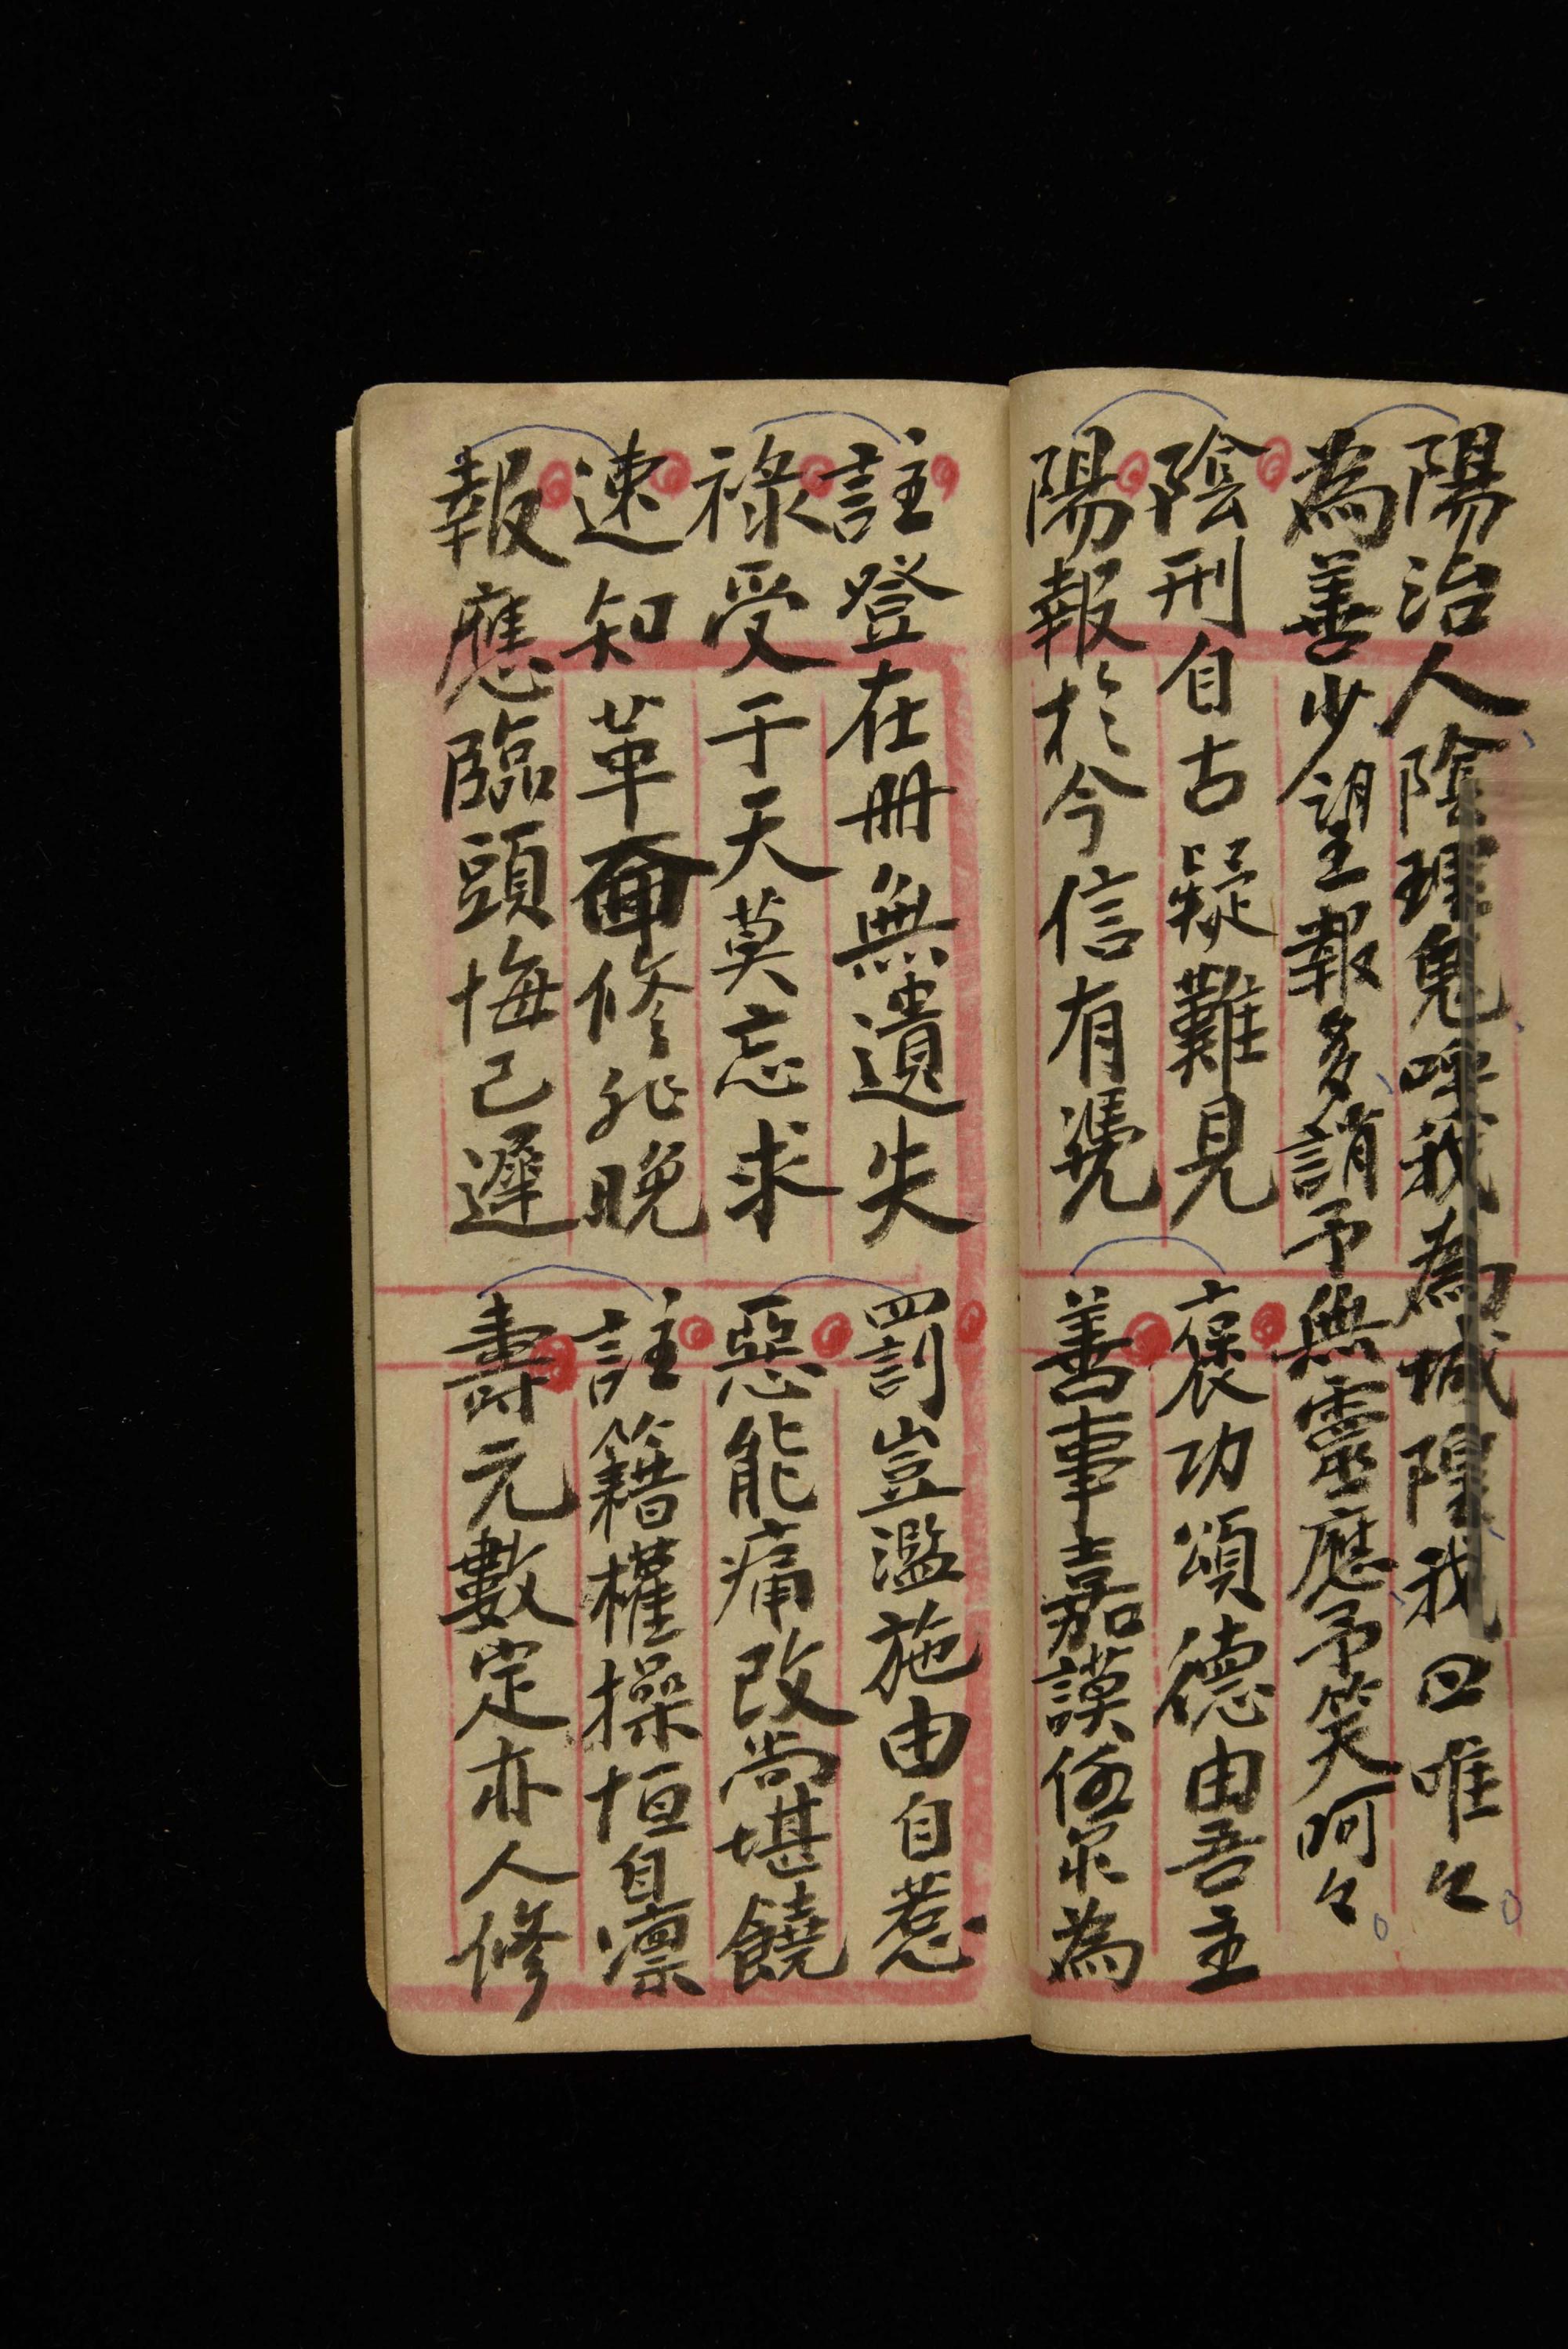 陽治人陰理鬼呼我為城隍我曰唯々
為善少望報多誚予無靈應予笑呵々
陰刑自古疑難見
陽報於今信有凴
褒功頌德由吾主
善事嘉謨係眾為
註登在册無遺失
祿受于天莫忘求
速知革面修非晚
報應臨頭悔已遲
罰豈濫施由自惹
惡能痛改尚堪饒
註籍權操恒自凛
壽元數定亦人修